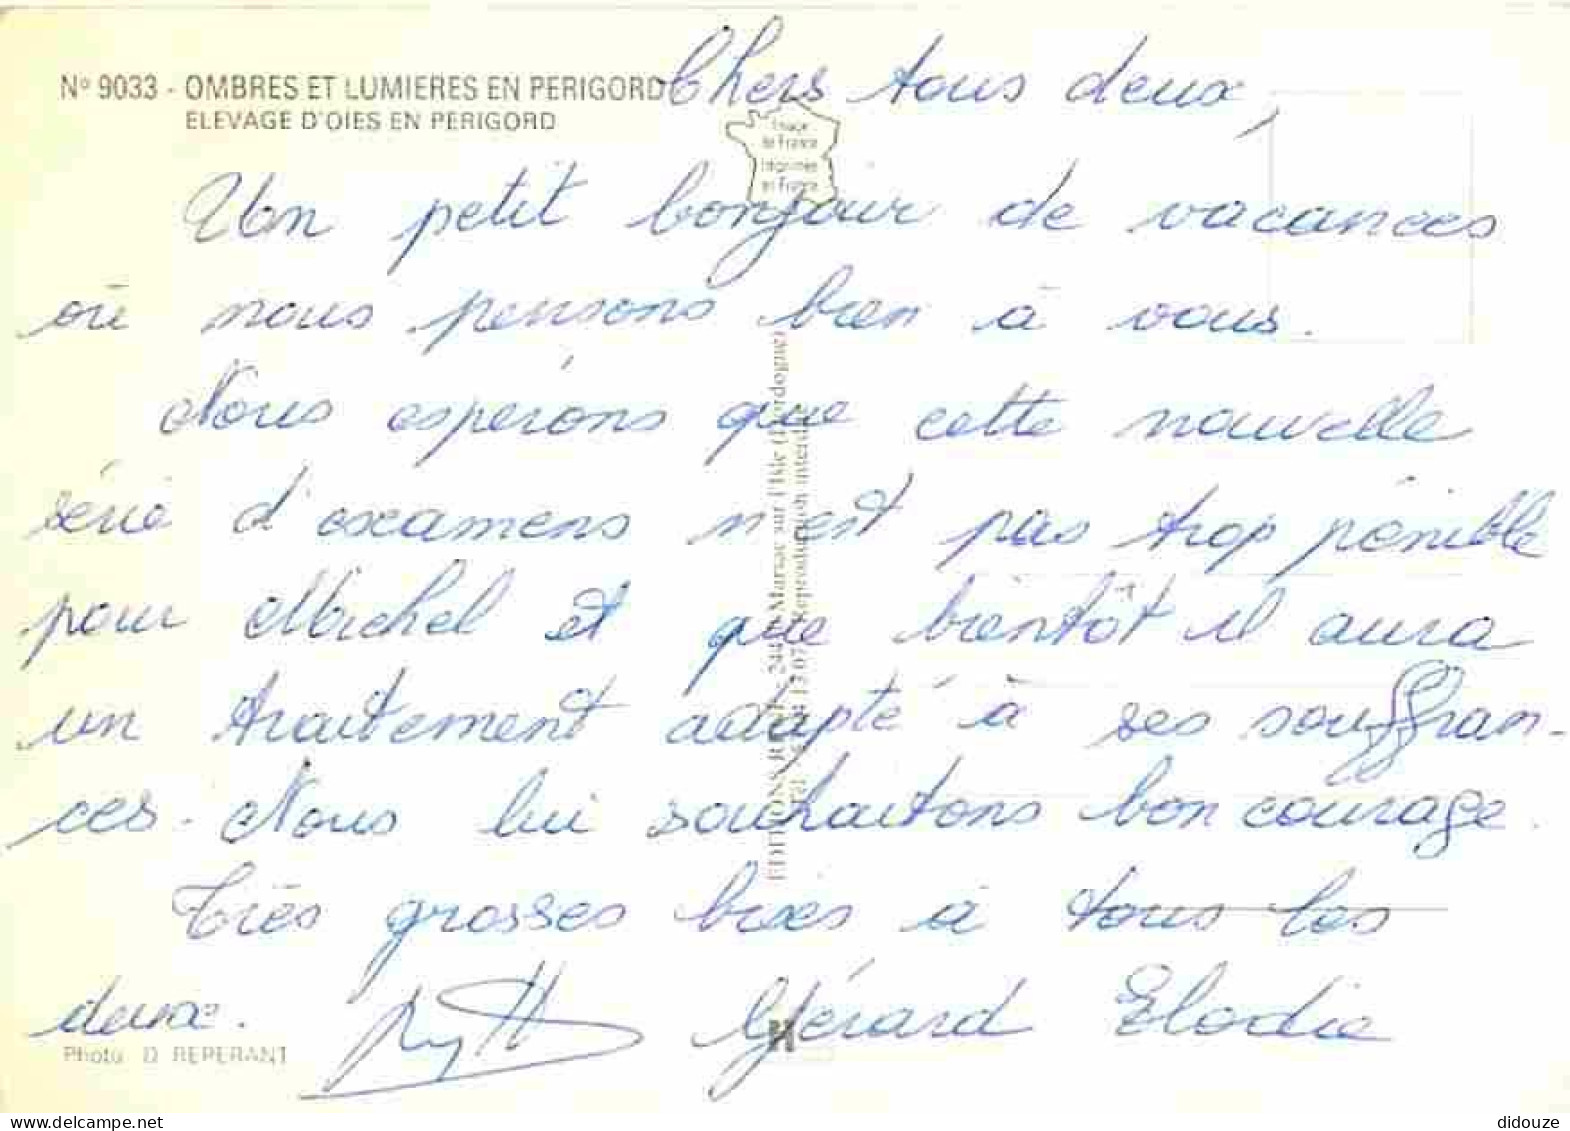 N° 9033 - OMBRES ET LUMIERES EN PERIGORD
ELEVAGE D'OIES EN PERIGORD
Image
de France
Imprimée
en France
Chers tous deux,
Un petit bonjour de vacances
où nous pensons bien à vous.
Nous espérons que cette nouvelle
série d'examens n'est pas trop pénible
pour Michel et que bientôt il aura
un traitement adapté à ses souffran-
ces. Nous lui souhaitons bon courage.
Très grosses bises à tous les
deux. Gérard Elodie
Photo D. REPERANT
EDITIONS Marsac sur l'Isle (Dordogne)
Reproduction interdite
didouze